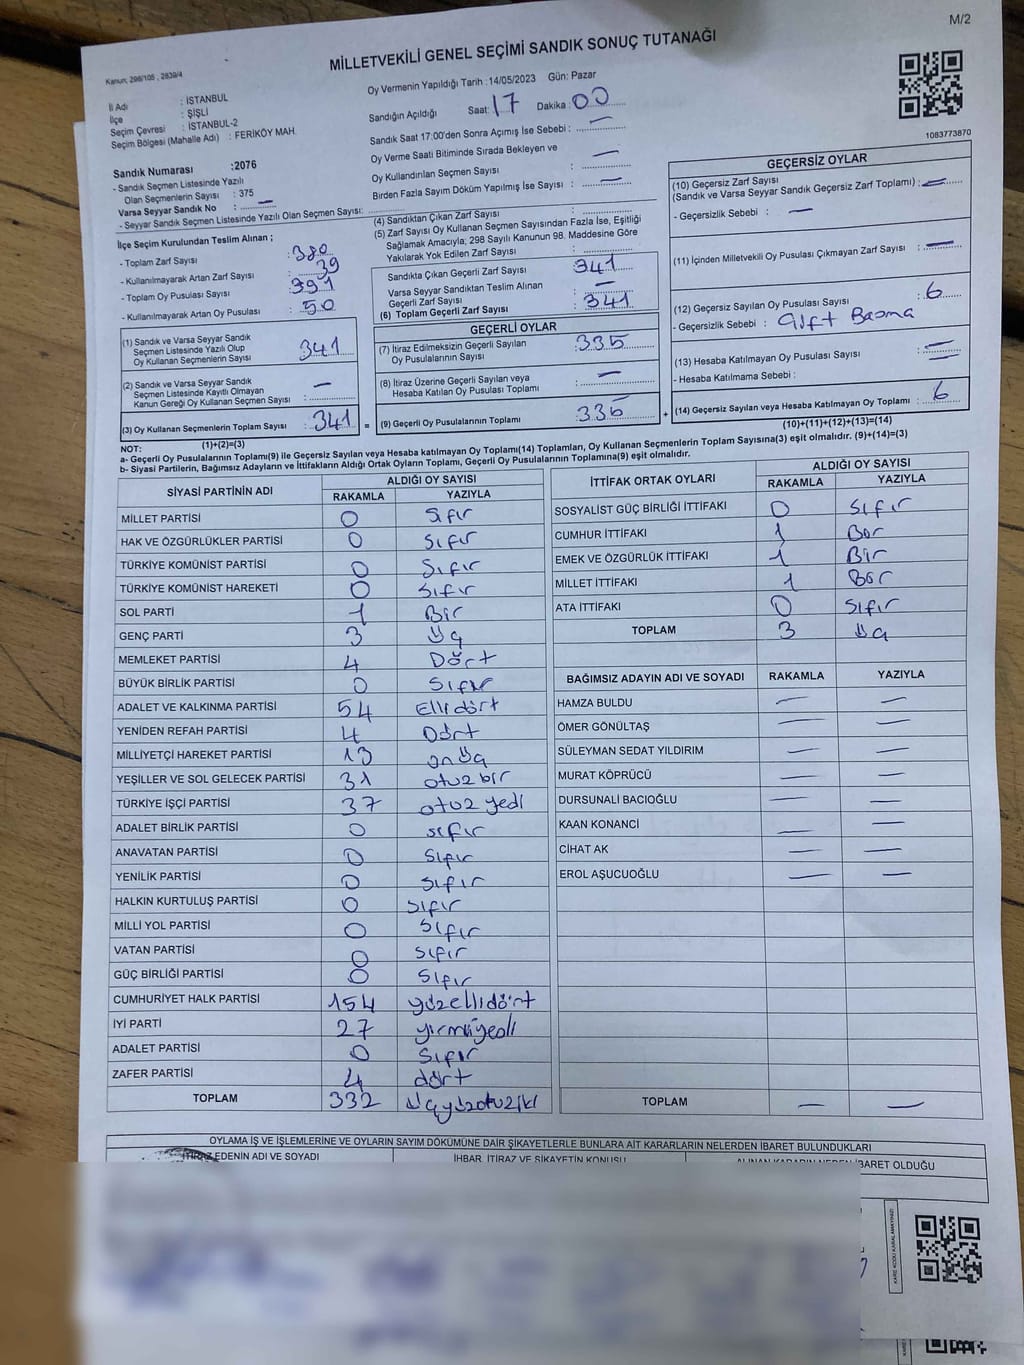 M/2
MİLLETVEKİLİ GENEL SEÇİMİ SANDIK SONUÇ TUTANAĞI
Kanun: 298/105 , 2839/4
İl Adı : İSTANBUL
İlçe : ŞİŞLİ
Seçim Çevresi : İSTANBUL-2
Seçim Bölgesi (Mahalle Adı) : FERİKÖY MAH.
Sandık Numarası :2076
- Sandık Seçmen Listesinde Yazılı
Olan Seçmenlerin Sayısı : 375
Varsa Seyyar Sandık No : —
- Seyyar Sandık Seçmen Listesinde Yazılı Olan Seçmen Sayısı:
İlçe Seçim Kurulundan Teslim Alınan ;
- Toplam Zarf Sayısı : 380
- Kullanılmayarak Artan Zarf Sayısı : 39
- Toplam Oy Pusulası Sayısı : 391
- Kullanılmayarak Artan Oy Pusulası : 50
(1) Sandık ve Varsa Seyyar Sandık
Seçmen Listesinde Yazılı Olup
Oy Kullanan Seçmenlerin Sayısı : 341
(2) Sandık ve Varsa Seyyar Sandık
Seçmen Listesinde Kayıtlı Olmayan
Kanun Gereği Oy Kullanan Seçmen Sayısı : —
(3) Oy Kullanan Seçmenlerin Toplam Sayısı : 341
(1)+(2)=(3)
Oy Vermenin Yapıldığı Tarih :14/05/2023 Gün: Pazar
Sandığın Açıldığı Saat: 17 Dakika : 00
Sandık Saat 17:00'den Sonra Açımış İse Sebebi : —
Oy Verme Saati Bitiminde Sırada Bekleyen ve
Oy Kullandırılan Seçmen Sayısı : —
Birden Fazla Sayım Döküm Yapılmış İse Sayısı : —
(4) Sandıktan Çıkan Zarf Sayısı :
(5) Zarf Sayısı Oy Kullanan Seçmen Sayısından Fazla İse, Eşitliği
Sağlamak Amacıyla; 298 Sayılı Kanunun 98. Maddesine Göre
Yakılarak Yok Edilen Zarf Sayısı :
Sandıkta Çıkan Geçerli Zarf Sayısı : 341
Varsa Seyyar Sandıktan Teslim Alınan
Geçerli Zarf Sayısı : —
(6) Toplam Geçerli Zarf Sayısı : 341
GEÇERLİ OYLAR
(7) İtiraz Edilmeksizin Geçerli Sayılan
Oy Pusulalarının Sayısı : 335
(8) İtiraz Üzerine Geçerli Sayılan veya
Hesaba Katılan Oy Pusulası Toplamı : —
= (9) Geçerli Oy Pusulalarının Toplamı : 335 +
1083773870
GEÇERSİZ OYLAR
(10) Geçersiz Zarf Sayısı
(Sandık ve Varsa Seyyar Sandık Geçersiz Zarf Toplamı) : —
- Geçersizlik Sebebi : —
(11) İçinden Milletvekili Oy Pusulası Çıkmayan Zarf Sayısı : —
(12) Geçersiz Sayılan Oy Pusulası Sayısı : 6
- Geçersizlik Sebebi : Çift Basma
(13) Hesaba Katılmayan Oy Pusulası Sayısı : —
- Hesaba Katılmama Sebebi : —
(14) Geçersiz Sayılan veya Hesaba Katılmayan Oy Toplamı : 6
(10)+(11)+(12)+(13)=(14)
NOT:
a- Geçerli Oy Pusulasının Toplamı(9) ile Geçersiz Sayılan veya Hesaba katılmayan Oy Toplamı(14) Toplamları, Oy Kullanan Seçmenlerin Toplam Sayısına(3) eşit olmalıdır. (9)+(14)=(3)
b- Siyasi Partilerin, Bağımsız Adayların ve İttifakların Aldığı Ortak Oyların Toplamı, Geçerli Oy Pusulalarının Toplamına(9) eşit olmalıdır.
SİYASİ PARTİNİN ADI ALDIĞI OY SAYISI
RAKAMLA YAZIYLA
MİLLET PARTİSİ 0 Sıfır
HAK VE ÖZGÜRLÜKLER PARTİSİ 0 Sıfır
TÜRKİYE KOMÜNİST PARTİSİ 0 Sıfır
TÜRKİYE KOMÜNİST HAREKETİ 0 Sıfır
SOL PARTİ 1 Bir
GENÇ PARTİ 3 Üç
MEMLEKET PARTİSİ 4 Dört
BÜYÜK BİRLİK PARTİSİ 0 Sıfır
ADALET VE KALKINMA PARTİSİ 54 Elli dört
YENİDEN REFAH PARTİSİ 4 Dört
MİLLİYETÇİ HAREKET PARTİSİ 13 on üç
YEŞİLLER VE SOL GELECEK PARTİSİ 31 otuz bir
TÜRKİYE İŞÇİ PARTİSİ 37 otuz yedi
ADALET BİRLİK PARTİSİ 0 sıfır
ANAVATAN PARTİSİ 0 Sıfır
YENİLİK PARTİSİ 0 Sıfır
HALKIN KURTULUŞ PARTİSİ 0 Sıfır
MİLLİ YOL PARTİSİ 0 Sıfır
VATAN PARTİSİ 0 Sıfır
GÜÇ BİRLİĞİ PARTİSİ 0 Sıfır
CUMHURİYET HALK PARTİSİ 154 yüzellidört
İYİ PARTİ 27 yirmiyedi
ADALET PARTİSİ 0 Sıfır
ZAFER PARTİSİ 4 dört
TOPLAM 332 üçyüzotuziki
İTTİFAK ORTAK OYLARI ALDIĞI OY SAYISI
RAKAMLA YAZIYLA
SOSYALİST GÜÇ BİRLİĞİ İTTİFAKI 0 Sıfır
CUMHUR İTTİFAKI 1 Bir
EMEK VE ÖZGÜRLÜK İTTİFAKI 1 Bir
MİLLET İTTİFAKI 1 Bir
ATA İTTİFAKI 0 Sıfır
TOPLAM 3 Üç
BAĞIMSIZ ADAYIN ADI VE SOYADI RAKAMLA YAZIYLA
HAMZA BULDU — —
ÖMER GÖNÜLTAŞ — —
SÜLEYMAN SEDAT YILDIRIM — —
MURAT KÖPRÜCÜ — —
DURSUNALİ BACIOĞLU — —
KAAN KONANCİ — —
CİHAT AK — —
EROL AŞUCUOĞLU — —
TOPLAM — —
OYLAMA İŞ VE İŞLEMLERİNE VE OYLARIN SAYIM DÖKÜMÜNE DAİR ŞİKAYETLERLE BUNLARA AİT KARARLARIN NELERDEN İBARET BULUNDUKLARI
İTİRAZ EDENİN ADI VE SOYADI İHBAR, İTİRAZ VE ŞİKAYETİN KONUSU ALINAN KARARIN NEDEN İBARET OLDUĞU
KARE KODU KARALAMAYINIZ!